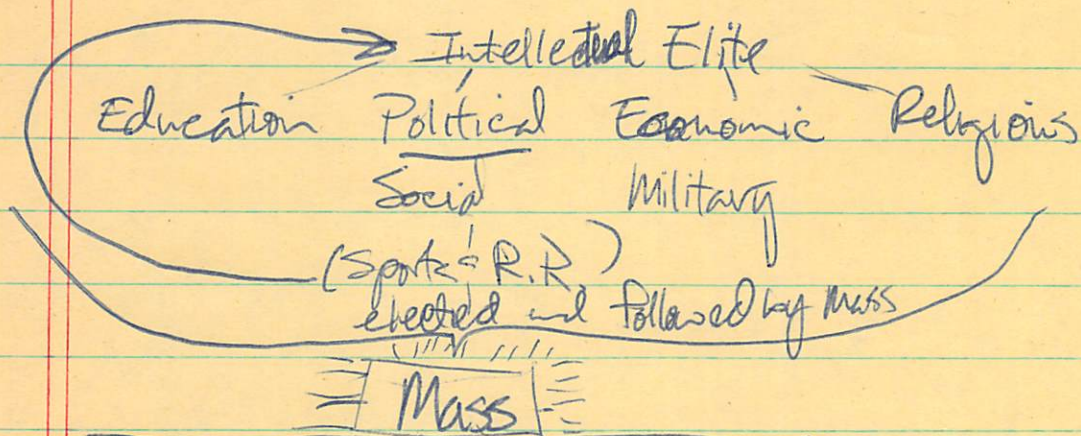 Intellectual Elite
Education Political Economic Religious
Social Military
(Sports & R.R.)
elected and followed by Mass
Mass